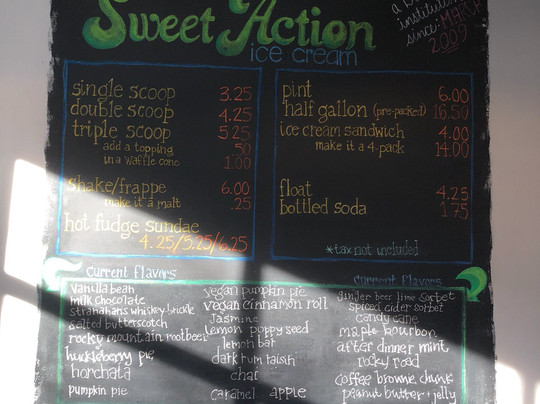 Sweet Action
ice cream
institution
since: MARCH
2009
single scoop 3.25
double scoop 4.25
triple scoop 5.25
add a topping 50
in a waffle cone 1.00
shake/frappe 6.00
make it a malt .25
hot fudge sundae
4.25/5.25/6.25
pint 6.00
half gallon (pre-packed) 16.50
ice cream sandwich 4.00
make it a 4 pack 14.00
float 4.25
bottled soda 1.75
*tax not included
current flavors
vanilla bean
milk chocolate
stranahans whiskey brickle
salted butterscotch
rocky mountain rootbeer
huckleberry pie
horchata
pumpkin pie
vegan pumpkin pie
vegan cinnamon roll
Jasmine
lemon poppy seed
lemon bar
dark rum raisin
chai
caramel apple
current flavors
ginger beer lime sorbet
spiced cider sorbet
candy cane
maple bourbon
after dinner mint
rocky road
coffee brownie chunk
peanut butter + jelly